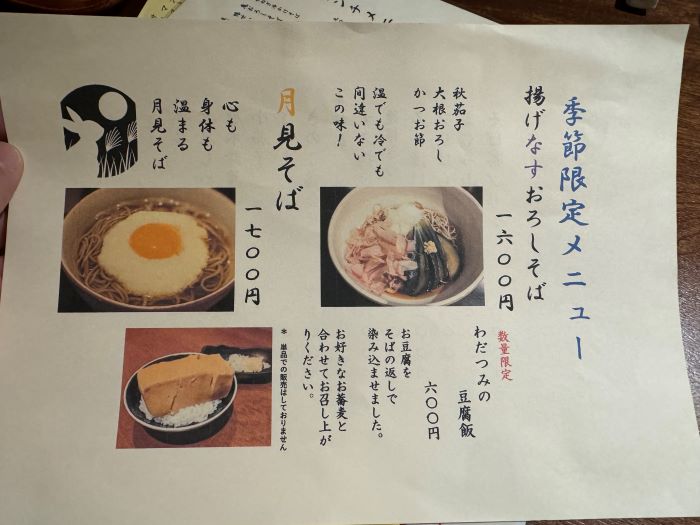 季節限定メニュー
揚げなすおろしそば
一六〇〇円
秋茄子
大根おろし
かつお節
温でも冷でも
間違いない
この味！
月見そば
一七〇〇円
心も
身体も
温まる
月見そば
数量限定
わだつみの
豆腐飯
六〇〇円
お豆腐を
そばの返しで
染み込ませました。
お好きなお蕎麦と
合わせてお召し上が
りください。
＊ 単品での販売はしておりません